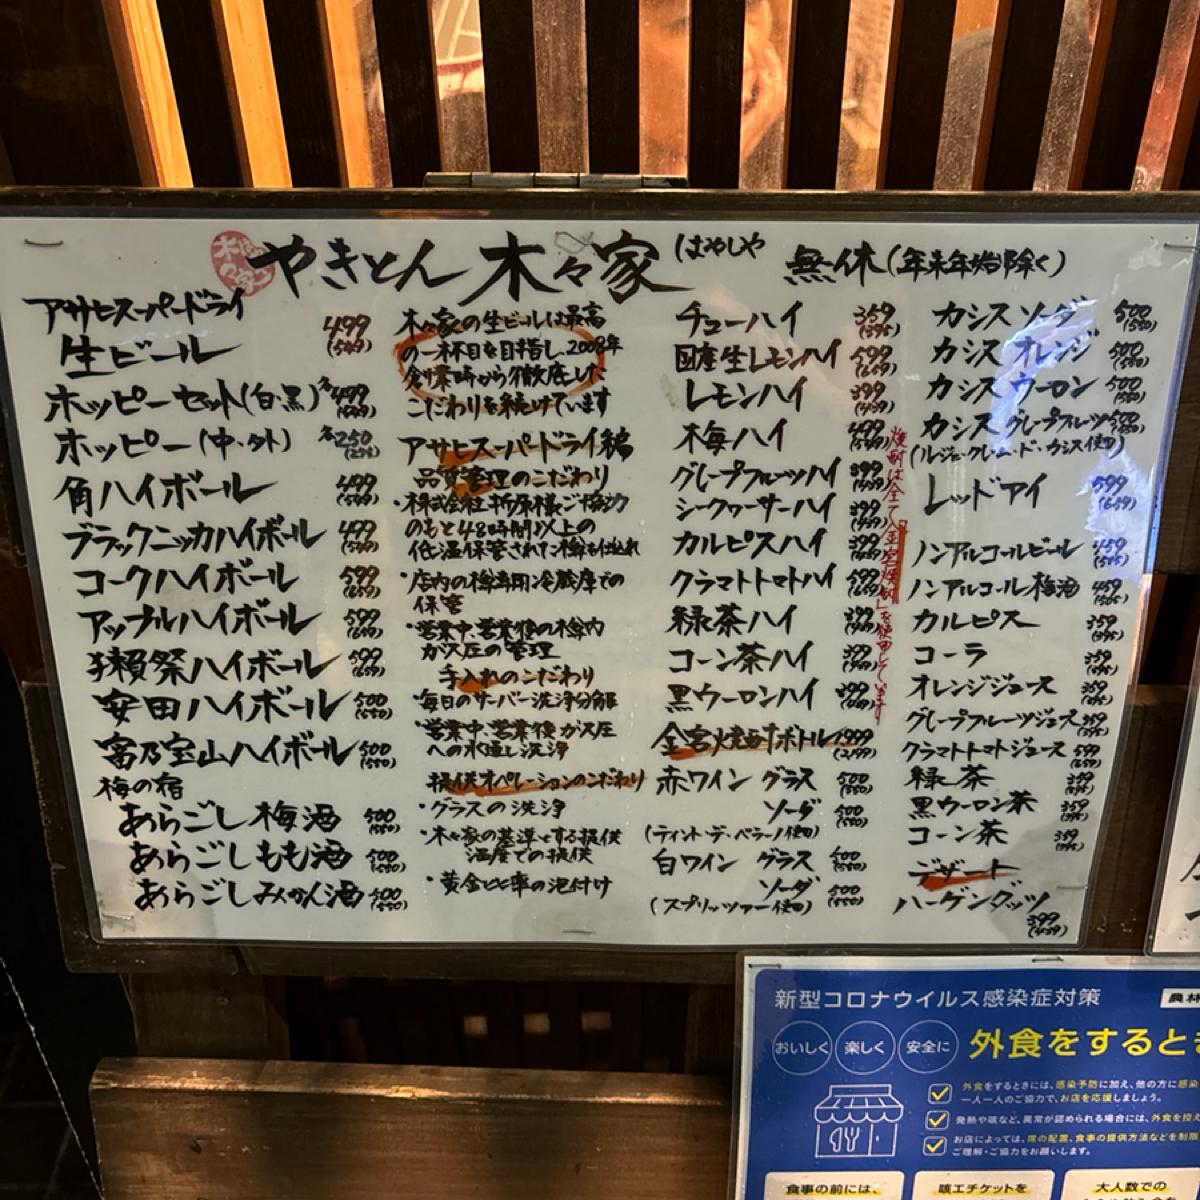 やきとん 木々家 はやしや 無休(年末年始除く)
アサヒスーパードライ
生ビール 499 (549)
ホッピーセット(白・黒) 各499 (549)
ホッピー(中・外) 各250 (275)
角ハイボール 499 (549)
ブラックニッカハイボール 499 (549)
コークハイボール 599 (659)
アップルハイボール 599 (659)
獺祭ハイボール 599 (659)
安田ハイボール 500 (550)
富乃宝山ハイボール 500 (550)
梅の宿
あらごし梅酒 500 (550)
あらごしもも酒 500 (550)
あらごしみかん酒 500 (550)
木々家の生ビールは最高
の一杯目を目指し、2008年
創業時から徹底した
こだわりを続けています
アサヒスーパードライ編
品質管理のこだわり
・株式会社 折原様ご協力
のもと48時間以上の
低温保管された樽を仕入れ
・店内の樽専用冷蔵庫での
保管
・営業中、営業後の樽内
ガス圧の管理
手入れのこだわり
・毎日のサーバー洗浄分解
・営業中、営業後ガス圧
への水通し洗浄
提供オペレーションのこだわり
・グラスの洗浄
・木々家の基準とする提供
温度での提供
・黄金比率の泡付け
チューハイ 359 (395)
国産生レモンハイ 599 (659)
レモンハイ 399 (439)
梅ハイ 499 (549)
グレープフルーツハイ 399 (439)
シークヮーサーハイ 399 (439)
カルピスハイ 399 (439)
クラマトトマトハイ 599 (659)
緑茶ハイ 399 (439)
コーン茶ハイ 399 (439)
黒ウーロンハイ 399 (439)
金宮焼酎ボトル 1,999 (2,199)
赤ワイン グラス 500 (550)
ソーダ 500 (550)
(ティント・デ・ベラーノ使用)
白ワイン グラス 500 (550)
ソーダ 500 (550)
(スプリッツァー使用)
焼酎は全て「金宮焼酎」を使用しています
カシス ソーダ 500 (550)
カシス オレンジ 500 (550)
カシス ウーロン 500 (550)
カシス グレープフルーツ 500 (550)
(ルジェ・クレーム・ド・カシス使用)
レッドアイ 599 (659)
ノンアルコールビール 459 (505)
ノンアルコール梅酒 459 (505)
カルピス 359 (395)
コーラ 359 (395)
オレンジジュース 359 (395)
グレープフルーツジュース 359 (395)
クラマトトマトジュース 599 (659)
緑茶 359 (395)
黒ウーロン茶 359 (395)
コーン茶 359 (395)
デザート
ハーゲンダッツ
399 (439)
新型コロナウイルス感染症対策
農林
おいしく 楽しく 安全に 外食をするとき
外食をするときには、感染予防に加え、他の方に感染
一人一人のご協力で、お店を応援しましょう。
発熱や咳など、異常が認められる場合には、外食を控え
お店によっては、席の配置、食事の提供方法などを制限
ご理解・ご協力をお願いします。
食事の前には、
咳エチケットを
大人数での